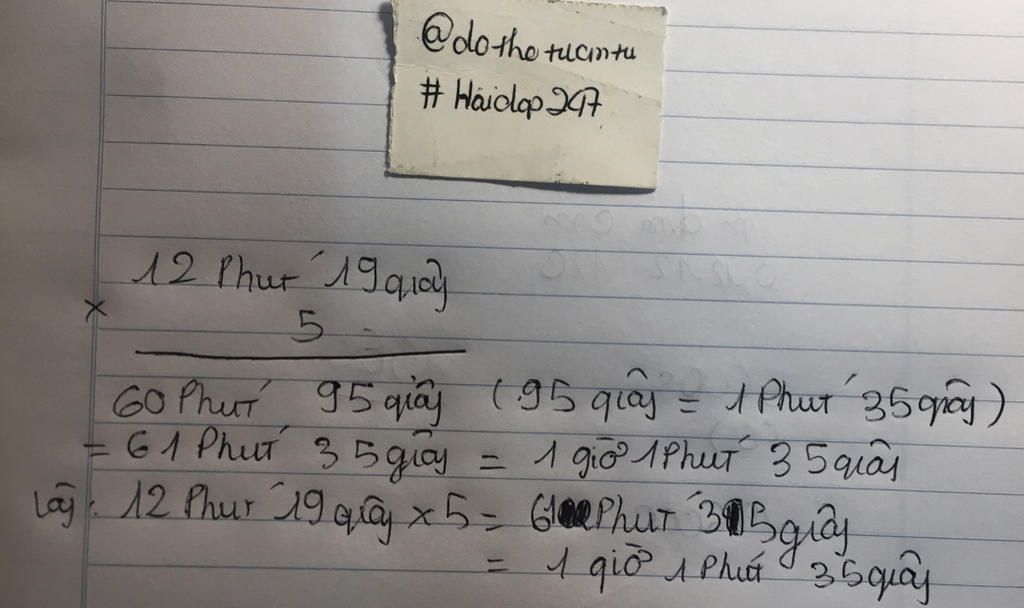 @dothotucintu
#Hoidap247
12 Phút 19 giây
×
5
60 Phút 95 giây (95 giây = 1 Phút 35 giây)
= 61 Phút 35 giây = 1 giờ 1 Phút 35 giây
Vậy: 12 Phút 19 giây × 5 = 61 Phút 35 giây
= 1 giờ 1 Phút 35 giây